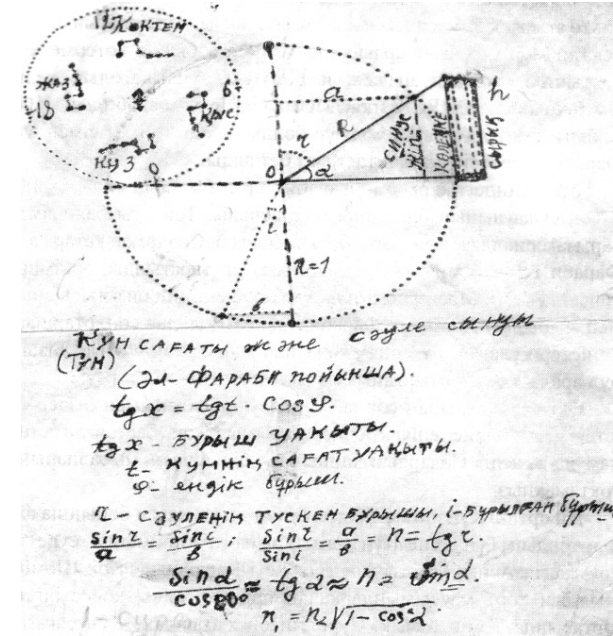 12 КӨКТЕМ
ЖАЗ
18
6
ҚЫС
КҮЗ
0
a
h
R
СИНУС
ЖІПІ
КӨЛЕҢКЕ
СЫРЫҚ
r
0
α
i
R=1
в
КҮН САҒАТЫ ЖӘНЕ СӘУЛЕ СЫНУЫ
(ТҮН)
(ӘЛ-ФАРАБИ ПОЙЫНША).
tg x = tgt · COS φ.
tg x БҰРЫШ УАҚЫТЫ.
t - КҮННІҢ САҒАТ УАҚЫТЫ
φ - ендік бұрышы.
r - СӘУЛЕНІҢ ТҮСКЕН БҰРЫШЫ, i - БҰРЫЛҒАН БҰРЫШЫ
sin r / a = sin i / в ; sin r / sin i a / в = n = tg r.
sin α / cos 20° ≈ tg 2 ≈ n = sin α.
n₁ = n₂ √1 - cos² α